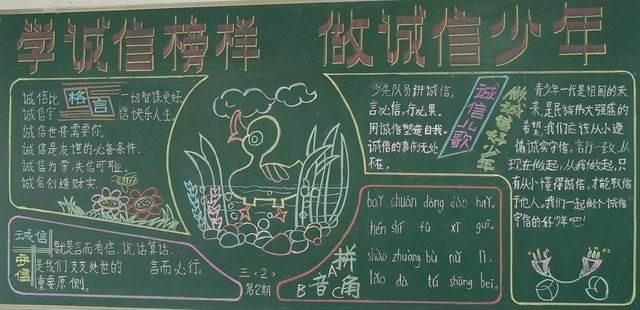 学诚信榜样 做诚信少年
格言
诚信比一切智谋更好。
诚信守信快乐人生。
诚信世将需要你。
诚信是友谊的必备条件。
诚信为荣,失信可耻。
诚信创造财实
诚信
守信
就是言而有信,说话算话,
是我们支支处世的
言而必行。
重要原则。
三〈2〉
第2期
少先队员讲诚信,
言必信,行必果。
用诚信塑造自我。
诚信的事例无处
不在。
诚信儿歌
做诚信好少年
青少年一代是祖国的未
来,是民族伟大强盛的
希望,我们应该从小遵
循诚实守信,言行一致,从
现在做起,从我做起,只
有从小懂得诚信,才能取信
于他人。我们一起做个"诚信"
守信的好少年吧!
bái chuán dōng dào hǎi
hēi shī fu xī guī
lǎo dà tú shāng bēi
拼
音
角
A
B
C